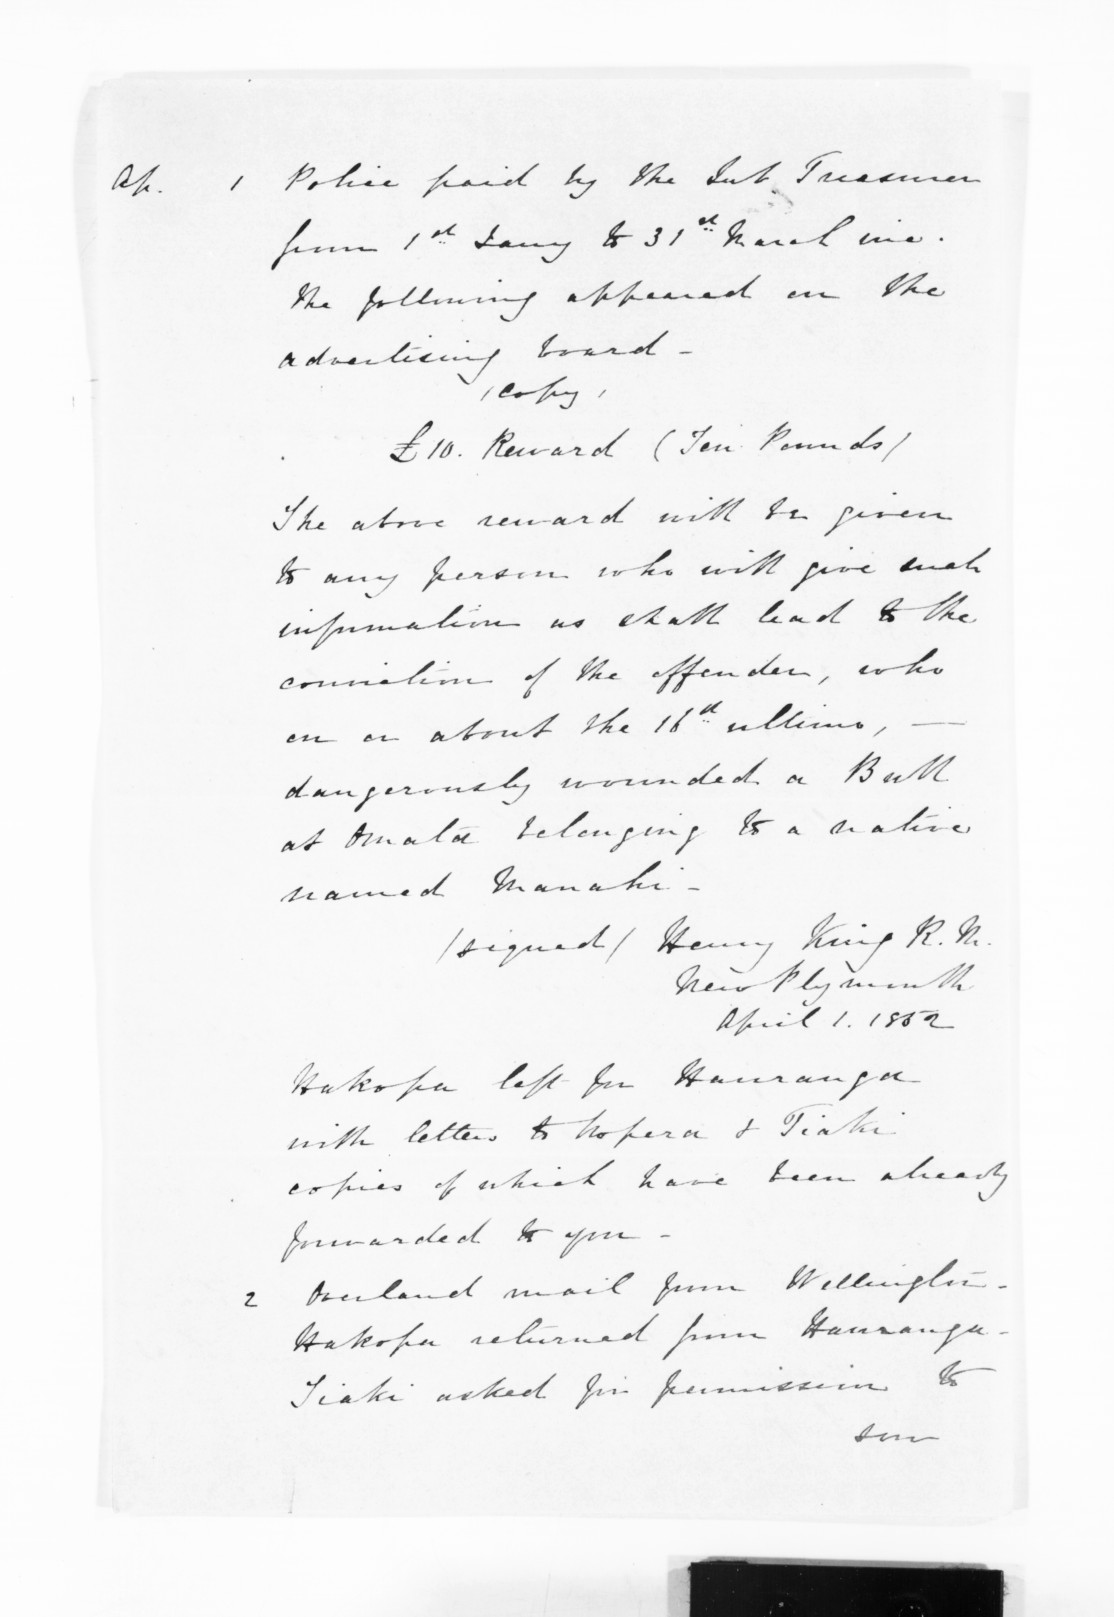 Ap. 1 Police paid by the Sub. Treasurer
from 1st Jany to 31st March inc.
The following appeared on the
advertising board -
(copy)
£10. Reward (Ten Pounds)
The above reward will be given
to any person who will give such
information as shall lead to the
conviction of the offender, who
on or about the 16th ultimo, —
dangerously wounded a Bull
at Omata belonging to a native
named Manahi -
(signed) Henry King R. M.
New Plymouth
April 1. 1852
Hakopa left for Hauranga
with letters to Hopera & Tiaki
copies of which have been already
forwarded to you -
2 Overland mail from Wellington -
Hakopa returned from Hauranga -
Tiaki asked for permission to
sow